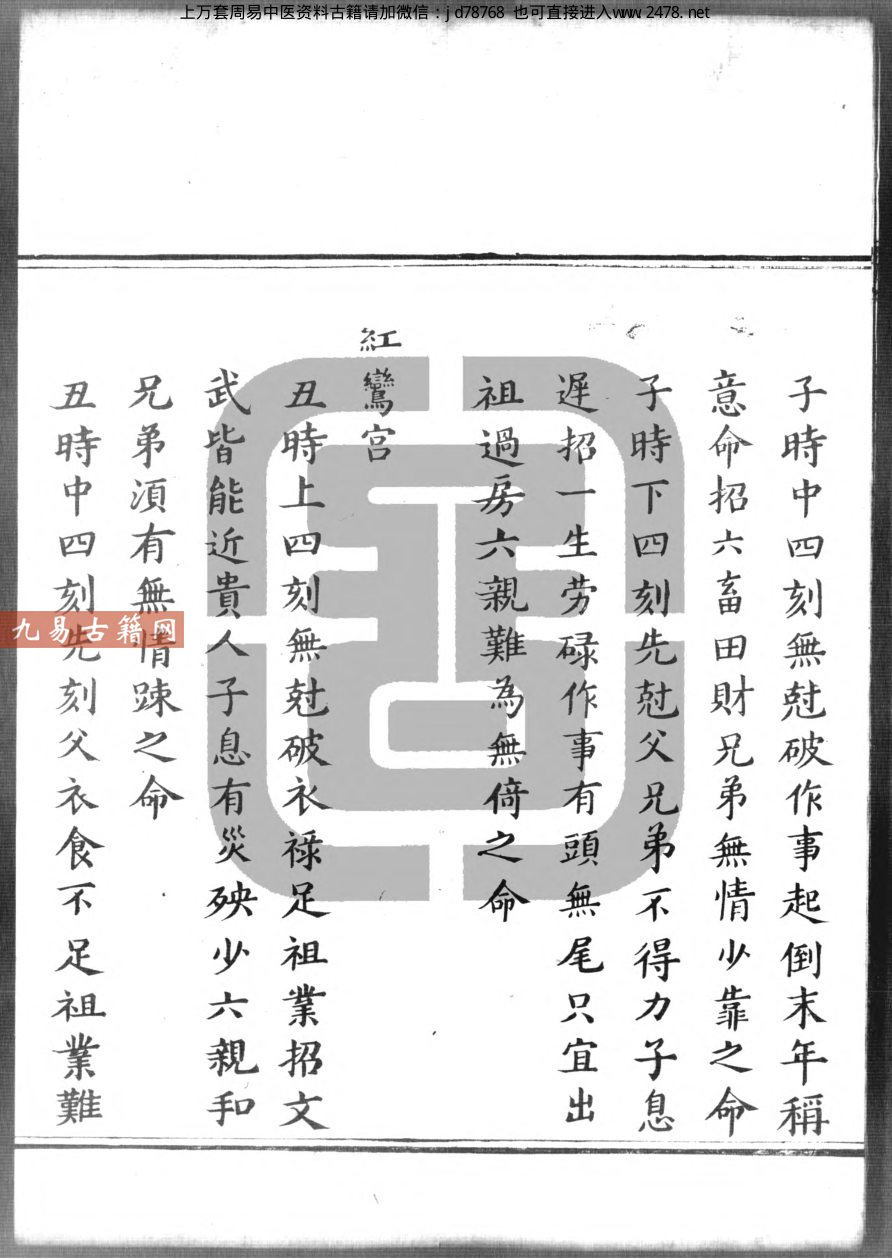 上万套周易中医资料古籍请加微信：jd78768 也可直接进入www.2478.net
子時中四刻無尅破作事起倒末年稱
意命招六畜田財兄弟無情少靠之命
子時下四刻先尅父兄弟不得力子息
遲招一生劳碌作事有頭無尾只宜出
祖過房六親難為無倚之命
紅鸞宮
丑時上四刻無尅破衣祿足祖業招文
武皆能近貴人子息有災殃少六親和
兄弟湏有無情踈之命
丑時中四刻先刻父衣食不足祖業難
九易古籍网